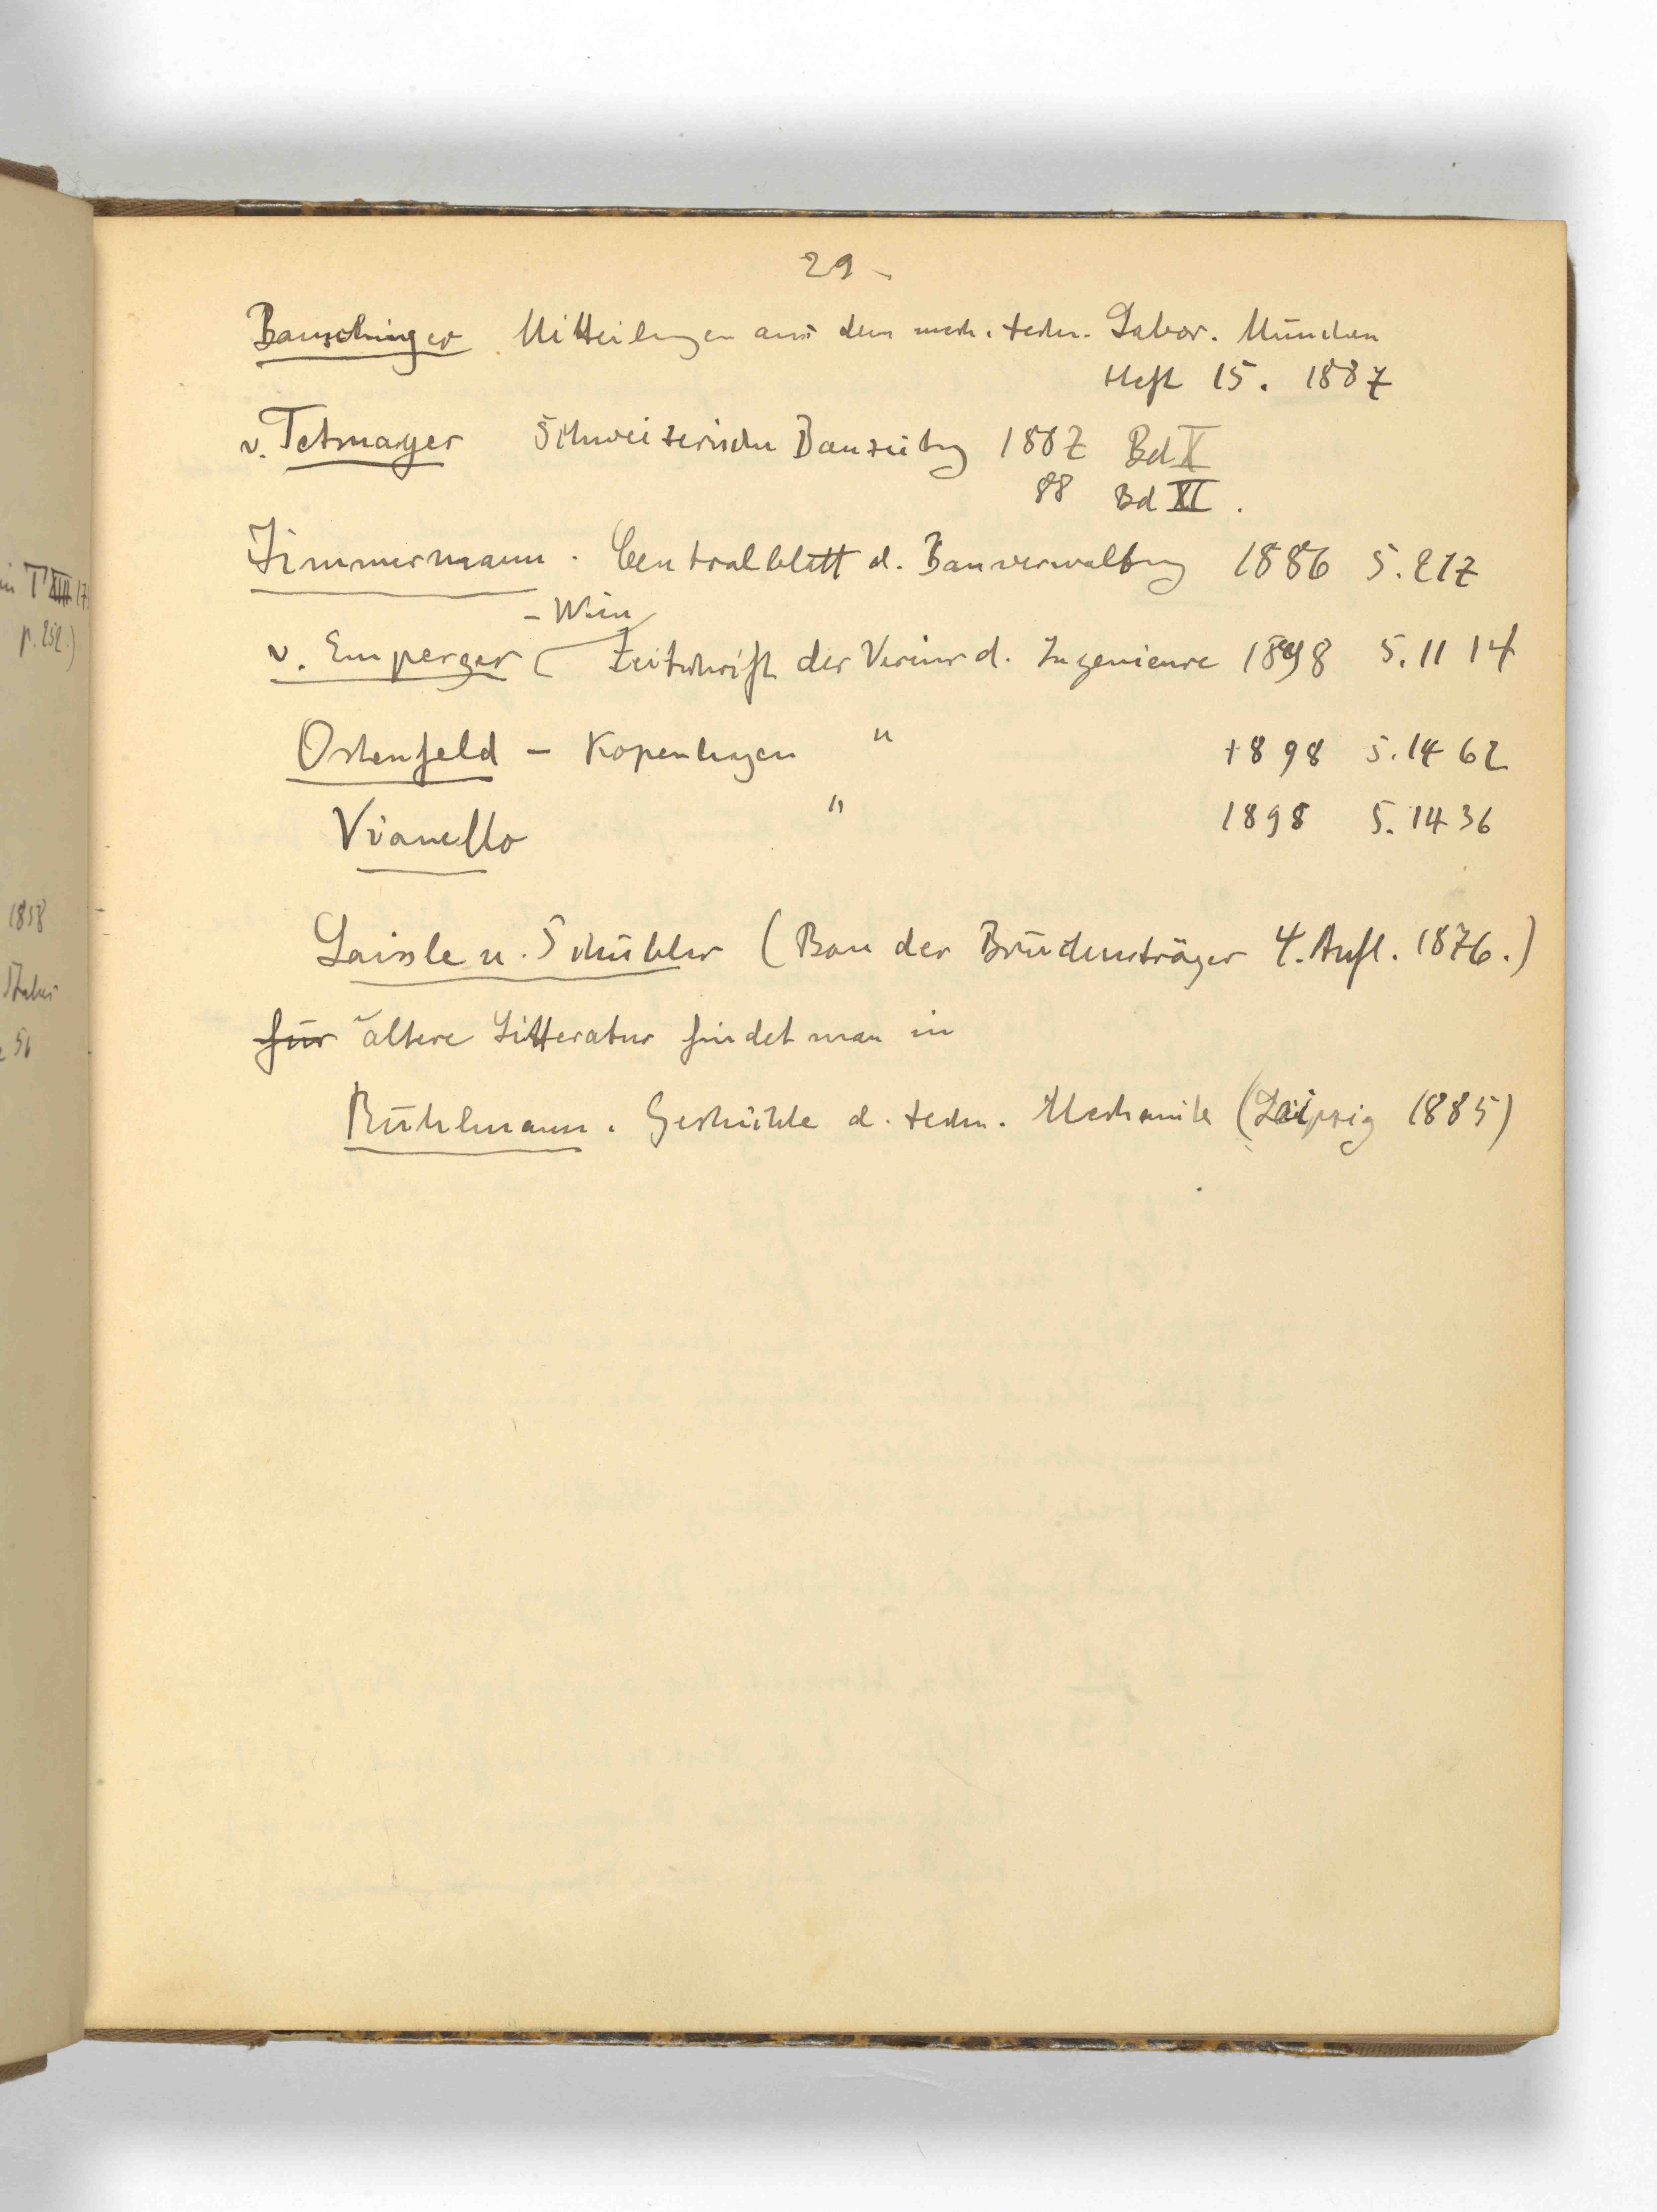 29
Bauschinger Mitteilungen aus dem mech. techn. Labor. München
Heft 15. 1887
v. Tetmayer Schweizerische Bauzeitung 1887 Bd X
88 Bd XI.
Zimmermann. Centralblatt d. Bauverwaltung 1886 S. 217
- Wien
v. Emperger ( Zeitschrift des Vereins d. Ingenieure 1898 S. 1114
Ostenfeld - Kopenhagen " 1898 S. 1462
Vianello " 1898 S. 1436
Laissle u. Schübler (Bau der Brückenträger 4. Aufl. 1876.)
für ältere Litteratur findet man in
Rühlmann. Geschichte d. techn. Mechanik (Leipzig 1885)
in T XIII 17
p. 252.)
1858